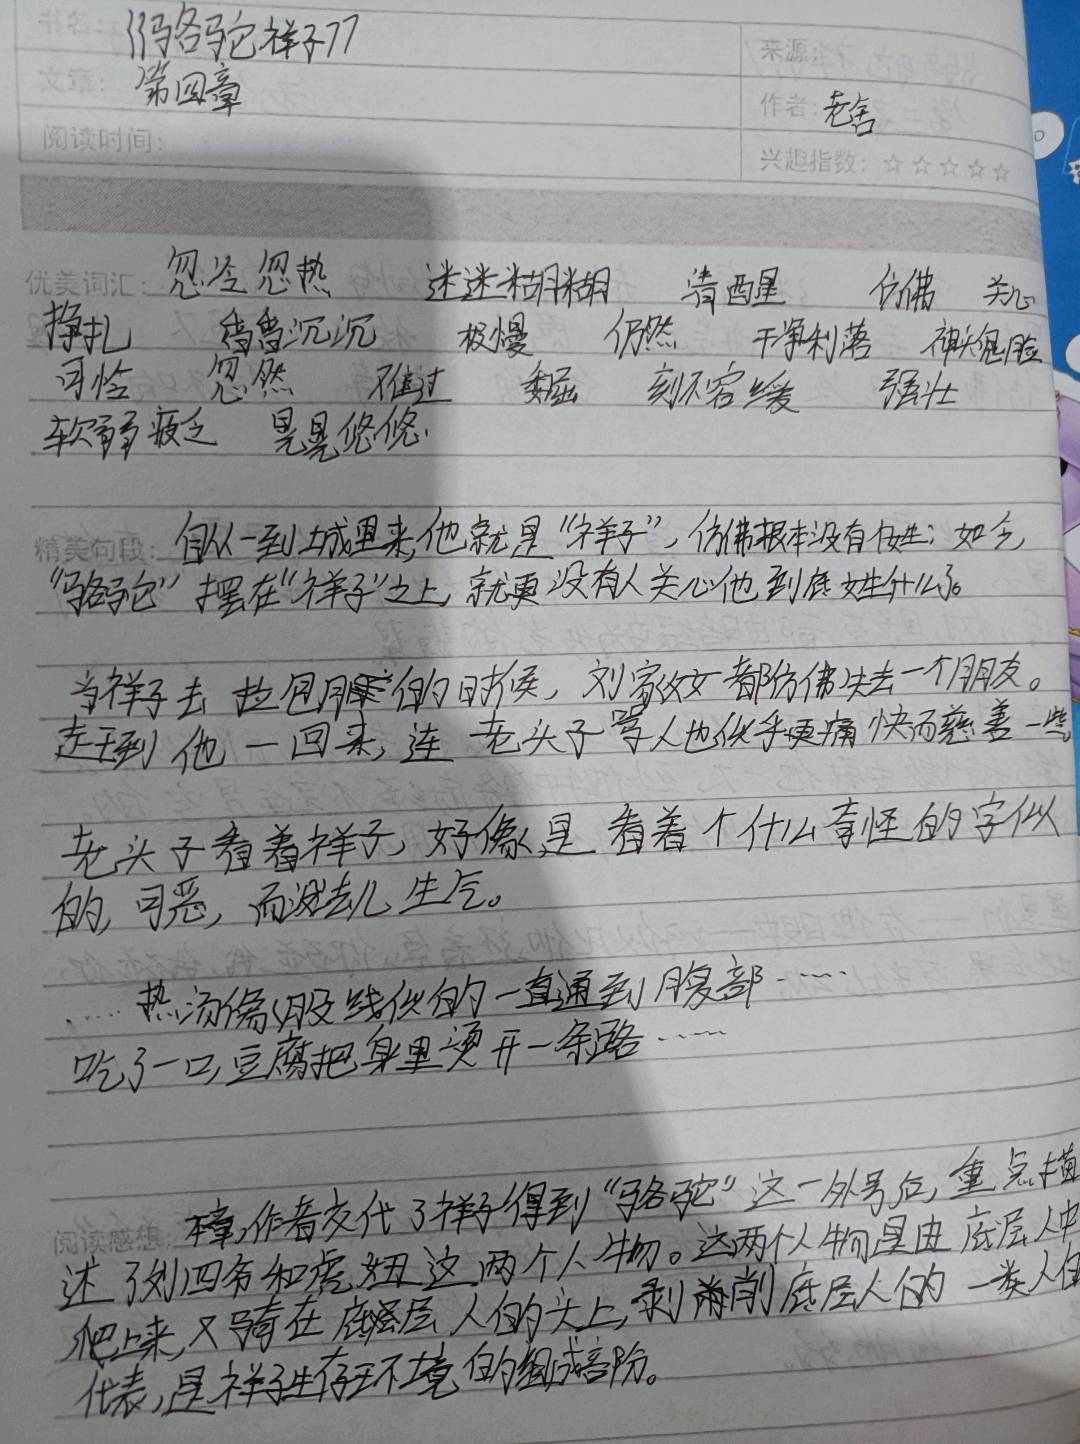 书名: 《骆驼祥子》
来源:
文章: 第四章
作者: 老舍
阅读时间:
兴趣指数: ☆☆☆☆☆
优美词汇: 忽冷忽热 迷迷糊糊 清醒 仿佛 关心
挣扎 昏昏沉沉 极慢 仍然 干净利落 神头鬼脸
可怜 忽然 难过 委屈 刻不容缓 强壮
软弱 疲乏 晃晃悠悠
精美句段: 自从一到城里来,他就是“祥子”,仿佛根本没有个姓;如今,
“骆驼”摆在“祥子”之上,就更没有人关心他到底姓什么了。
当祥子去拉包月的时候,刘家父女都仿佛失去一个朋友。
赶到他一回来,连老头子骂人也似乎更痛快而慈善一些。
老头子看着祥子,好像是看着个什么奇怪的字似
的,可恶,而没法儿生气。
……热汤像股线似的一直通到腹部……
吃了一口,豆腐把身里烫开一条路……
阅读感想: 本章,作者交代了祥子得到“骆驼”这一外号后,重点描
述了刘四爷和虎妞这两个人物。这两个人物是由底层人中
爬上来,又骑在底层人的头上,剥削底层人的一类人的
代表,是祥子生存环境的组成部份。